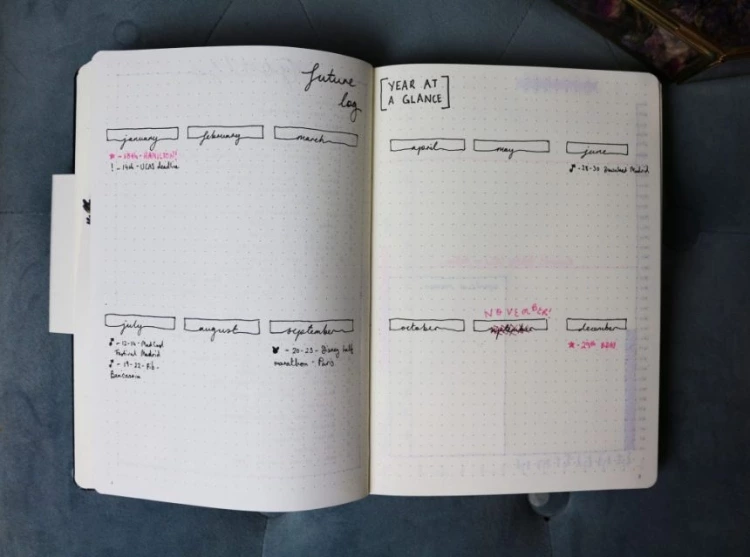 future
log
january
february
march
★ - 18th - HAMILTON!
! - 14th - UCAS deadline
july
august
september
♪ - 12-14 - Mad Cool
Festival Madrid
♪ - 19-22 - Fib -
20-23 - Disney half
marathon - Paris
YEAR AT
A GLANCE
april
may
june
♪ - 28-30 Madrid
october
NOVEMBER!
december
★ - 29th